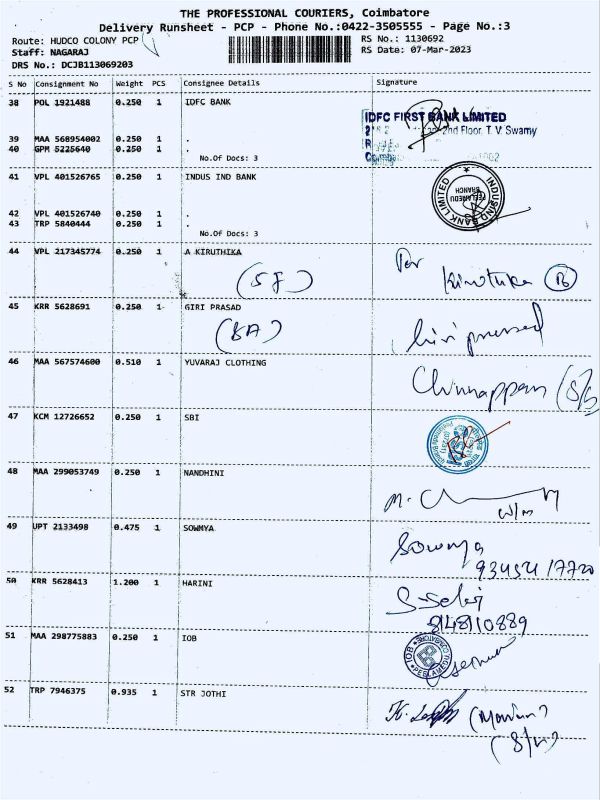 THE PROFESSIONAL COURIERS, Coimbatore
Delivery Runsheet - PCP - Phone No.:0422-3505555 - Page No.:3
Route: HUDCO COLONY PCP RS No.: 1130692
Staff: NAGARAJ RS Date: 07-Mar-2023
DRS No.: DCJB113069203
S No Consignment No Weight PCS Consignee Details Signature
38 POL 1921488 0.250 1 IDFC BANK
IDFC FIRST BANK LIMITED
2nd Floor, T. V. Swamy
39 MAA 568954002 0.250 1 .
40 GPM 5225640 0.250 1 .
No.Of Docs: 3
41 VPL 401526765 1 INDUS IND BANK
INDUSIND BANK LIMITED
PEELAMEDU
BRANCH
42 VPL 401526740 0.250 1 .
43 TRP 5840444 0.250 1 .
No.Of Docs: 3
44 VPL 217345774 0.250 1 A KIRUTHIKA
For
Kiruthika
45 KRR 5628691 0.250 1 GIRI PRASAD
46 MAA 567574600 0.510 1 YUVARAJ CLOTHING
Chinnappan
47 KCM 12726652 0.250 1 SBI
48 MAA 299053749 0.250 1 NANDHINI
49 UPT 2133498 0.475 1 SOWMYA
Sowmya
50 KRR 5628413 1.200 1 HARINI
8148110889
51 MAA 298775883 0.250 1 IOB
IOB
52 TRP 7946375 0.935 1 STR JOTHI